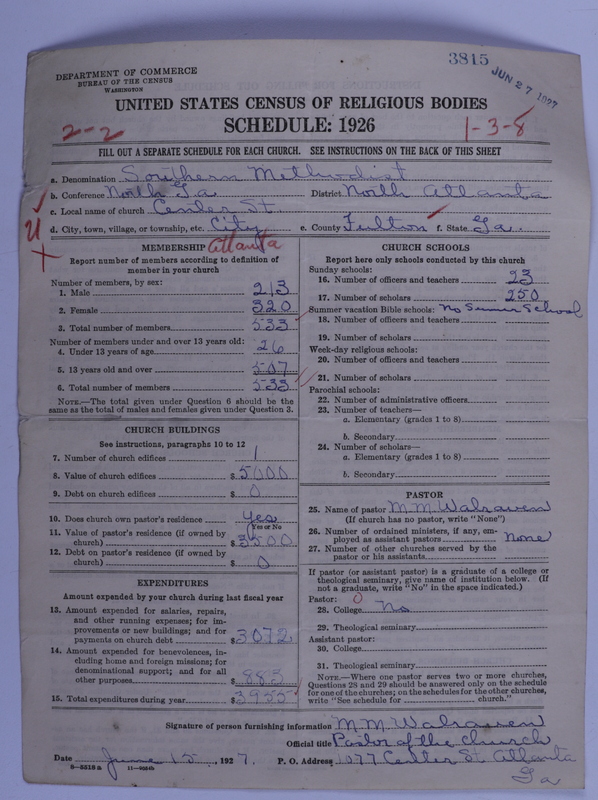 3815
JUN 27 1927
DEPARTMENT OF COMMERCE
BUREAU OF THE CENSUS
WASHINGTON
UNITED STATES CENSUS OF RELIGIOUS BODIES
SCHEDULE: 1926
2-2
1-3-8
FILL OUT A SEPARATE SCHEDULE FOR EACH CHURCH. SEE INSTRUCTIONS ON THE BACK OF THIS SHEET
a. Denomination Southern Methodist
b. Conference North Ga District North Atlanta
c. Local name of church Center St.
d. City, town, village, or township, etc. City e. County Fulton f. State Ga.
Atlanta
MEMBERSHIP
Report number of members according to definition of
member in your church
Number of members, by sex:
1. Male 213
2. Female 320
3. Total number of members 533
Number of members under and over 13 years old:
4. Under 13 years of age 26
5. 13 years old and over 507
6. Total number of members 533
NOTE.—The total given under Question 6 should be
same as the total of males and females given under Question 3.
CHURCH BUILDINGS
See instructions, paragraphs 10 to 12
7. Number of church edifices 1
8. Value of church edifices $5000
9. Debt on church edifices $0
10. Does church own pastor's residence Yes
Yes or No
11. Value of pastor's residence (if owned by
church) $3500
12. Debt on pastor's residence (if owned by
church) $0
EXPENDITURES
Amount expended by your church during last fiscal year
13. Amount expended for salaries, repairs,
and other running expenses; for im-
provements or new buildings; and for
payments on church debt $3072
14. Amount expended for benevolences, in-
cluding home and foreign missions; for
denominational support; and for all
other purposes $883
15. Total expenditures during year $3955
CHURCH SCHOOLS
Report here only schools conducted by this church
Sunday schools:
16. Number of officers and teachers 23
17. Number of scholars 250
Summer vacation Bible schools: No Sumer School
18. Number of officers and teachers
19. Number of scholars
Week-day religious schools:
20. Number of officers and teachers
21. Number of scholars
Parochial schools:
22. Number of administrative officers
23. Number of teachers—
a. Elementary (grades 1 to 8)
b. Secondary
24. Number of scholars—
a. Elementary (grades 1 to 8)
b. Secondary
PASTOR
25. Name of pastor M. M. Walraven
(If church has no pastor, write "None")
26. Number of ordained ministers, if any, em-
ployed as assistant pastors None
27. Number of other churches served by the
pastor or his assistants
If pastor (or assistant pastor) is a graduate of a college or
theological seminary, give name of institution below. (If
not a graduate, write "No" in the space indicated.)
Pastor: 0
28. College No
29. Theological seminary
Assistant pastor:
30. College
31. Theological seminary
NOTE.—Where one pastor serves two or more churches,
Questions 28 and 29 should be answered only on the schedule
for one of the churches; on the schedules for the other churches,
write "See schedule for church."
Signature of person furnishing information M. M. Walraven
Official title Pastor of the church
Date June 15, 1927. P. O. Address 1077 Center St. Atlanta
Ga
8—5518 a 11—9554b